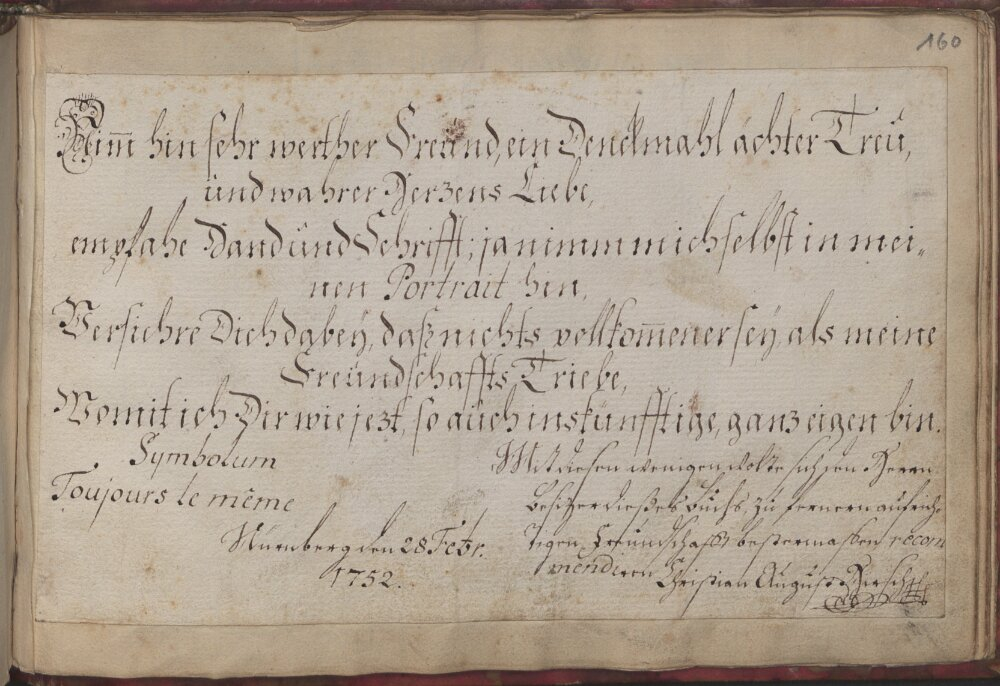 160
Nim̅ hin sehr werther Freünd, ein Denckmahl ächter Treü,
ünd wahrer Herzens Liebe,
empfahe Hand ünd Schrifft; ja nimm mich selbst in mei-
nen Portrait hin,
Versichre Dich dabey, daß nichts vollkom̅ener sey, als meine
Freündschaffts Triebe,
Womit ich Dir wie jezt, so aüch inskünfftige, ganz eigen bin.
Symbolum
Toujours le même
Nürnberg den 28 Febr.
1752.
Mit diesen wenigen wolte sich den Herrn
Besitzer dießes Buchs, zu fernern aufrich-
tigen Freundschafft bestermaßen recom
mendiren Christian August Hirsch